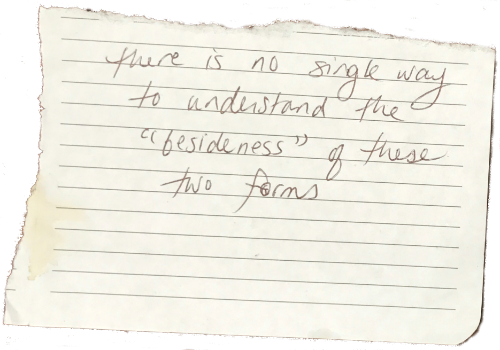 there is no single way
to understand the
"besideness" of these
two forms